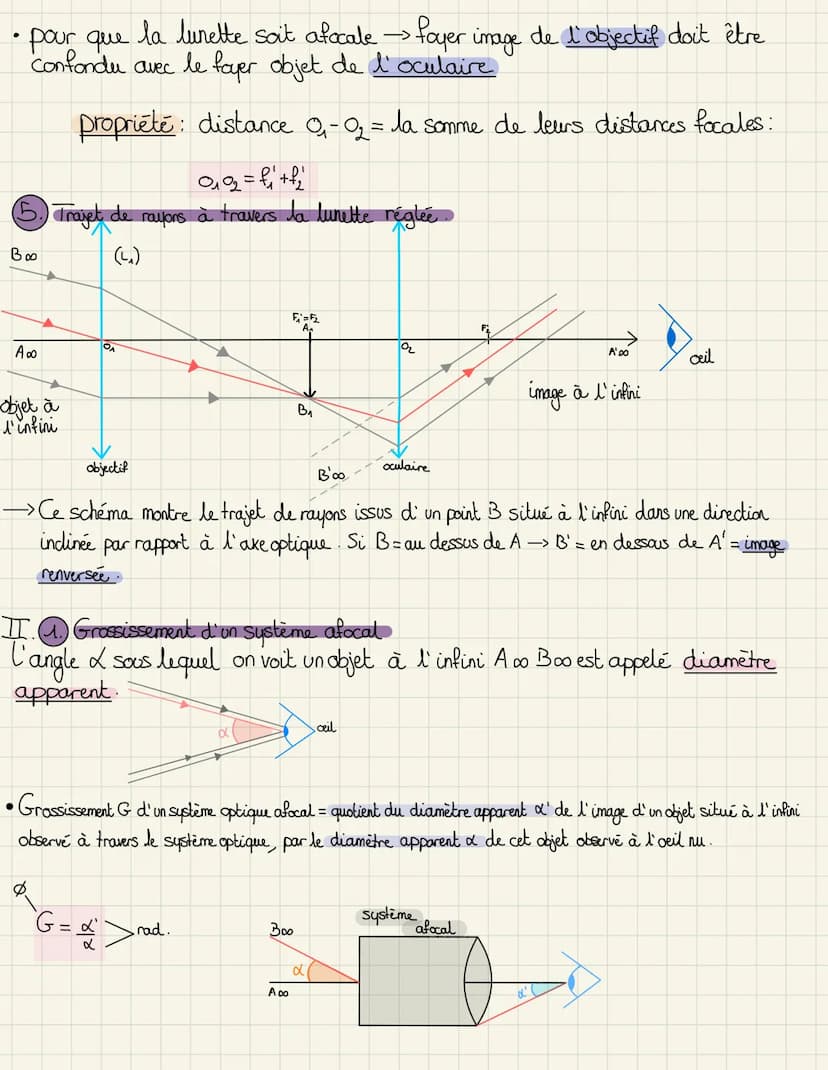 • pour que la lunette soit afocale → foyer image de l'objectif doit être
confondu avec le foyer objet de l'oculaire
propriété : distance O₁-O₂ = la somme de leurs distances focales :
O₁O₂ = f₁' + f₂'
5. Trajet de rayons à travers la lunette réglée.
B∞
(L₁)
F₁'=F₂
A₁
F₂'
A∞
O₁
O₂
A'∞
œil
objet à
l'infini
B₁
image à l'infini
objectif
B'∞
oculaire
→ Ce schéma montre le trajet de rayons issus d'un point B situé à l'infini dans une direction
inclinée par rapport à l'axe optique. Si B = au dessus de A → B' = en dessous de A' = image
renversée.
II. 1. Grossissement d'un système afocal
L'angle α sous lequel on voit un objet à l'infini A∞ B∞ est appelé diamètre
apparent.
α
œil
• Grossissement G d'un système optique afocal = quotient du diamètre apparent α' de l'image d'un objet situé à l'infini
observé à travers le système optique, par le diamètre apparent α de cet objet observé à l'oeil nu.
Ø
G = α'/α > rad.
système
afocal
B∞
α
A∞
α'